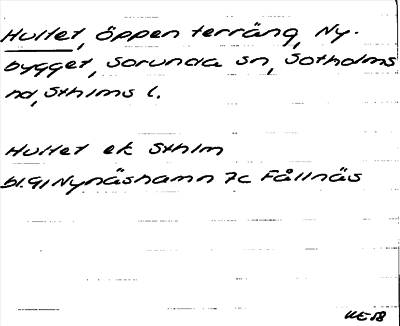 Hultet, öppen terräng, Ny-
bygget, Sorunda sn, Sotholms
hd, Sthlms l.
Hultet ek Sthlm
bl. 91 Nynäshamn 7c Fållnäs
UE58